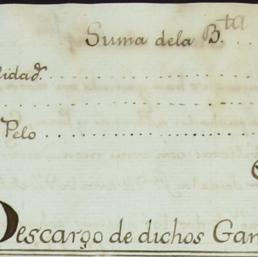 Suma dela B.ta ..
idad. ....................
....................
Pelo ....................
Descargo de dichos Gan